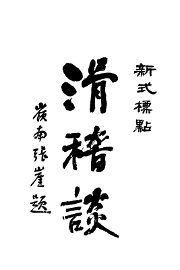 新式標點
滑稽談
嶺南張崖題